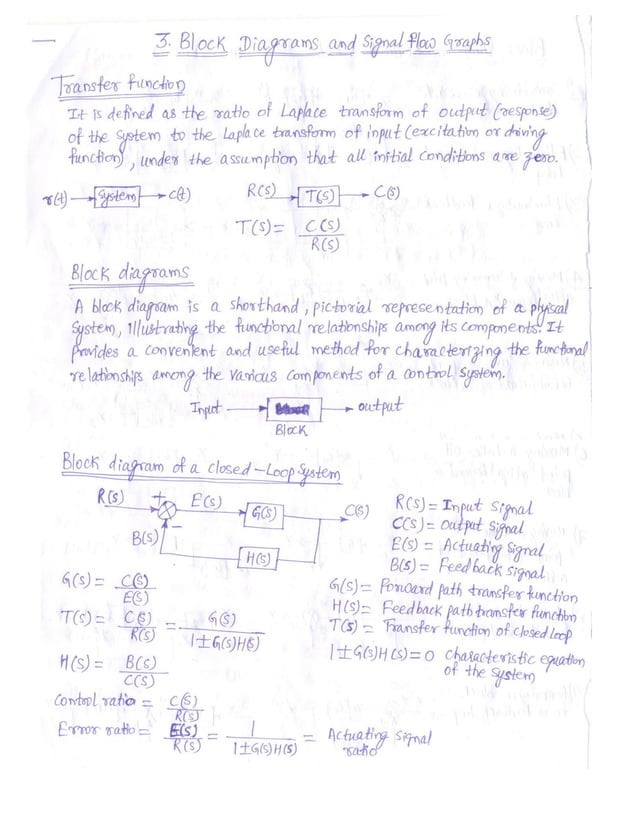 3. Block Diagrams and Signal flow Graphs
Transfer function
It is defined as the ratio of Laplace transform of output (response)
of the system to the Laplace transform of input (excitation or driving
function), under the assumption that all initial conditions are zero.
r(t) → System → c(t) R(S) → T(S) → C(S)
T(S) = C(S) / R(S)
Block diagrams
A block diagram is a shorthand, pictorial representation of a physcal
System, illustrating the functional relationships among its components. It
Provides a convenient and useful method for characterizing the functional
relationships among the various components of a control system.
Input → → output
Block
Block diagram of a closed-Loop System
R(S) + E(S) G(S) C(S) R(S) = Input Signal
C(S) = output Signal
B(S) − E(S) = Actuating Signal
H(S) B(S) = Feedback Signal
G(S) = C(S) / E(S) G(S) = Forward path transfer function
H(S) = Feedback path transfer function
T(S) = C(S) / R(S) = G(S) / 1±G(S)H(S) T(S) = Transfer function of closed loop
H(S) = B(S) / C(S) 1±G(S)H(S)=0 characteristic equation
of the system
Control ratio = C(S) / R(S)
Error ratio = E(S) / R(S) = 1 / 1±G(S)H(S) = Actuating signal
ratio